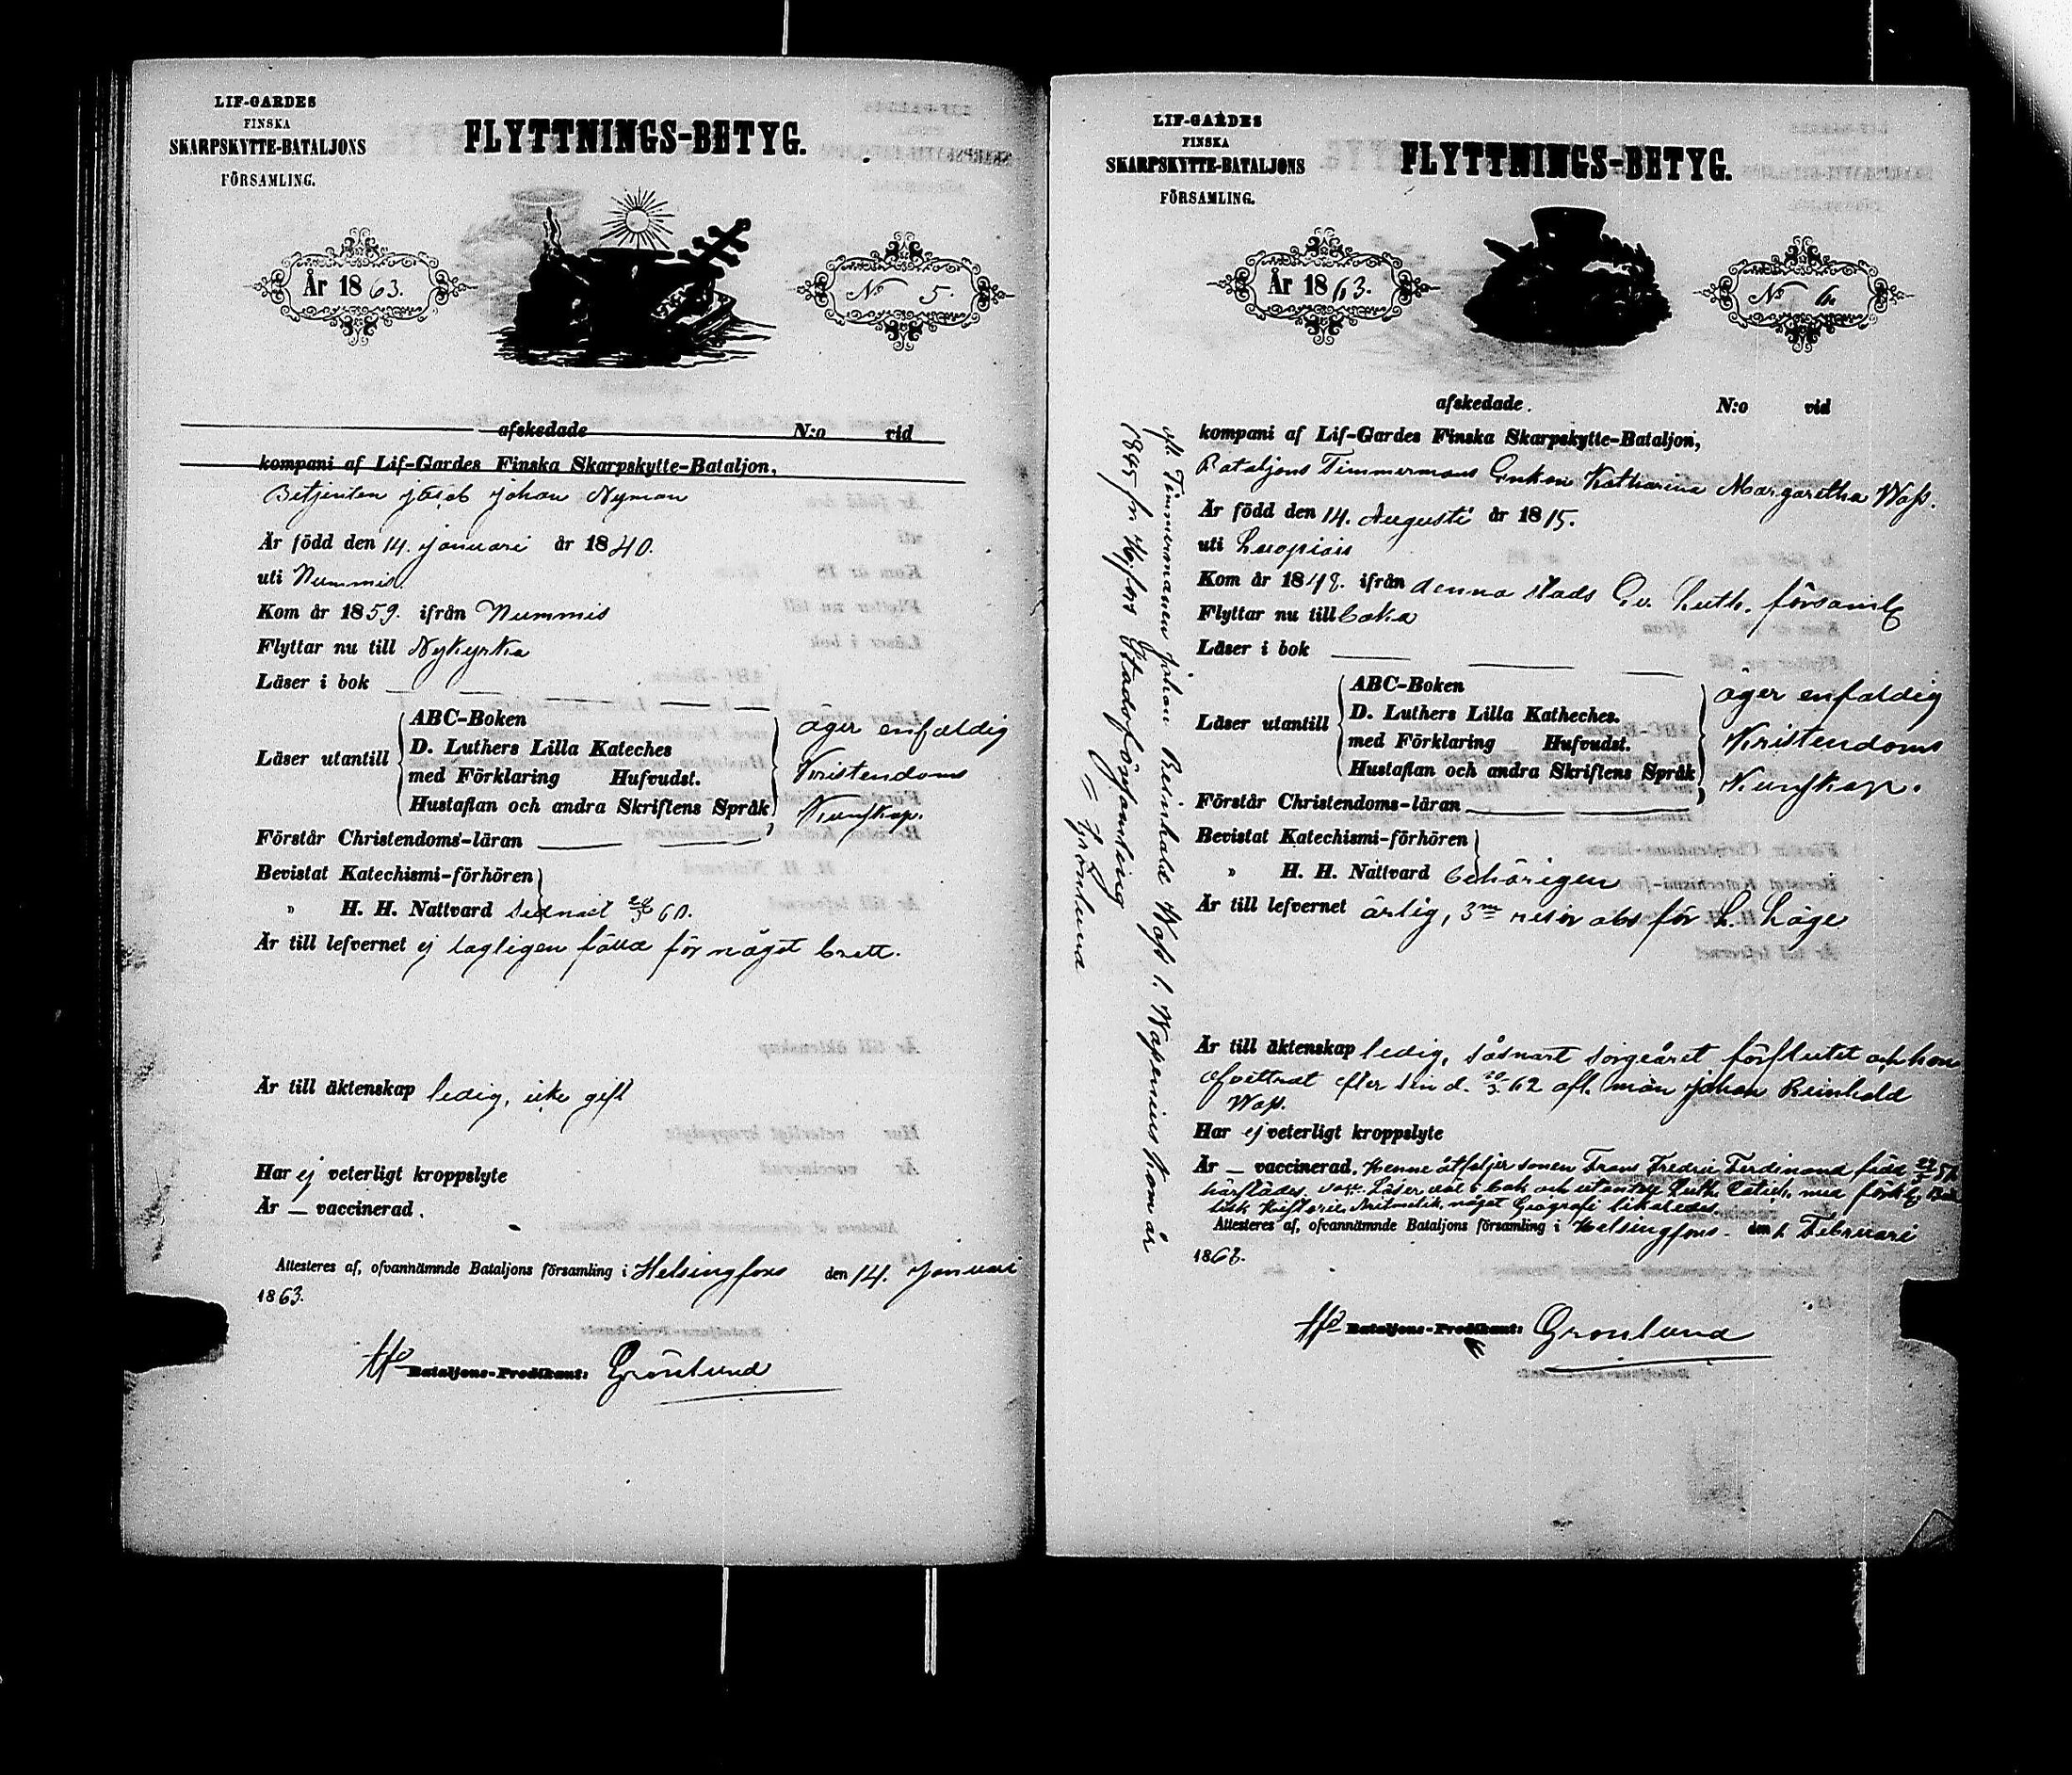 LIF-GARDES
FINSKA
SKARPSKYTTE-BATALJONS
FÖRSAMLING.
FLYTTNINGS-BETYG.
År 1863.
No 5.
afskedade N:o vid
kompani af Lif-Gardes Finska Skarpskytte-Bataljon,
Betjenten Jacob Johan Nyman
Är född den 14. Januari år 1840.
uti Nummis
Kom år 1859. ifrån Nummis
Flyttar nu till Nykyrka
Läser i bok
Läser utantill
ABC-Boken
D. Luthers Lilla Kateches
med Förklaring Hufvudst.
Hustaflan och andra Skriftens Språk
äger enfaldig
Kristendoms
Kunskap.
Förstår Christendoms-läran
Bevistat Katechismi-förhören
" H. H. Nattvard sednast 60.
Är till lefvernet ej lagligen fälld för något brott.
Är till äktenskap ledig, icke gift
Har ej veterligt kroppslyte
Är — vaccinerad.
Attesteres af, ofvannämnde Bataljons församling i Helsingfors den 14. Januari
1863.
Bataljons-Predikant: Grönlund
LIF-GARDES
FINSKA
SKARPSKYTTE-BATALJONS
FÖRSAMLING.
FLYTTNINGS-BETYG.
År 1863.
No 6.
afskedade. N:o vid
kompani af Lif-Gardes Finska Skarpskytte-Bataljon,
Bataljons Timmermans Enkan Katharina Margaretha Wass.
Är född den 14. Augusti år 1815.
uti Luopiois
Kom år 1848. ifrån denna stads Ev. Luth. församl
Flyttar nu till
Läser i bok
Läser utantill
ABC-Boken
D. Luthers Lilla Katheches.
med Förklaring Hufvudst.
Hustaflan och andra Skriftens Språk
äger enfaldig
Kristendoms
Kunskap.
Förstår Christendoms-läran
Bevistat Katechismi-förhören
" H. H. Nattvard behörigen
Är till lefvernet ärlig, 3ne resor abs för L. Läge
Är till äktenskap ledig, såsnart sorgeåret förflutit och hon
afvittrat efter sin d. 20/3 62 afl. man Johan Reinhold
Wass.
Har ej veterligt kroppslyte
Är — vaccinerad. Henne åtföljer sonen Frans Fredric Ferdinand född 57
härstädes, vacc. Läser väl i bok och utantill Luth. Catech. med förkl. Bib
lisk Historie, Aritmetik, något Geografi likaledes.
Attesteres af, ofvannämnde Bataljons församling i Helsingfors. den 1 Februari
1863.
Bataljons-Predikant: Grönlund
afl. Timmermannen Johan Reinhold Wass l. Wapenius kom år
1845 fr. H:fors Stadsförsamling
Grönlund